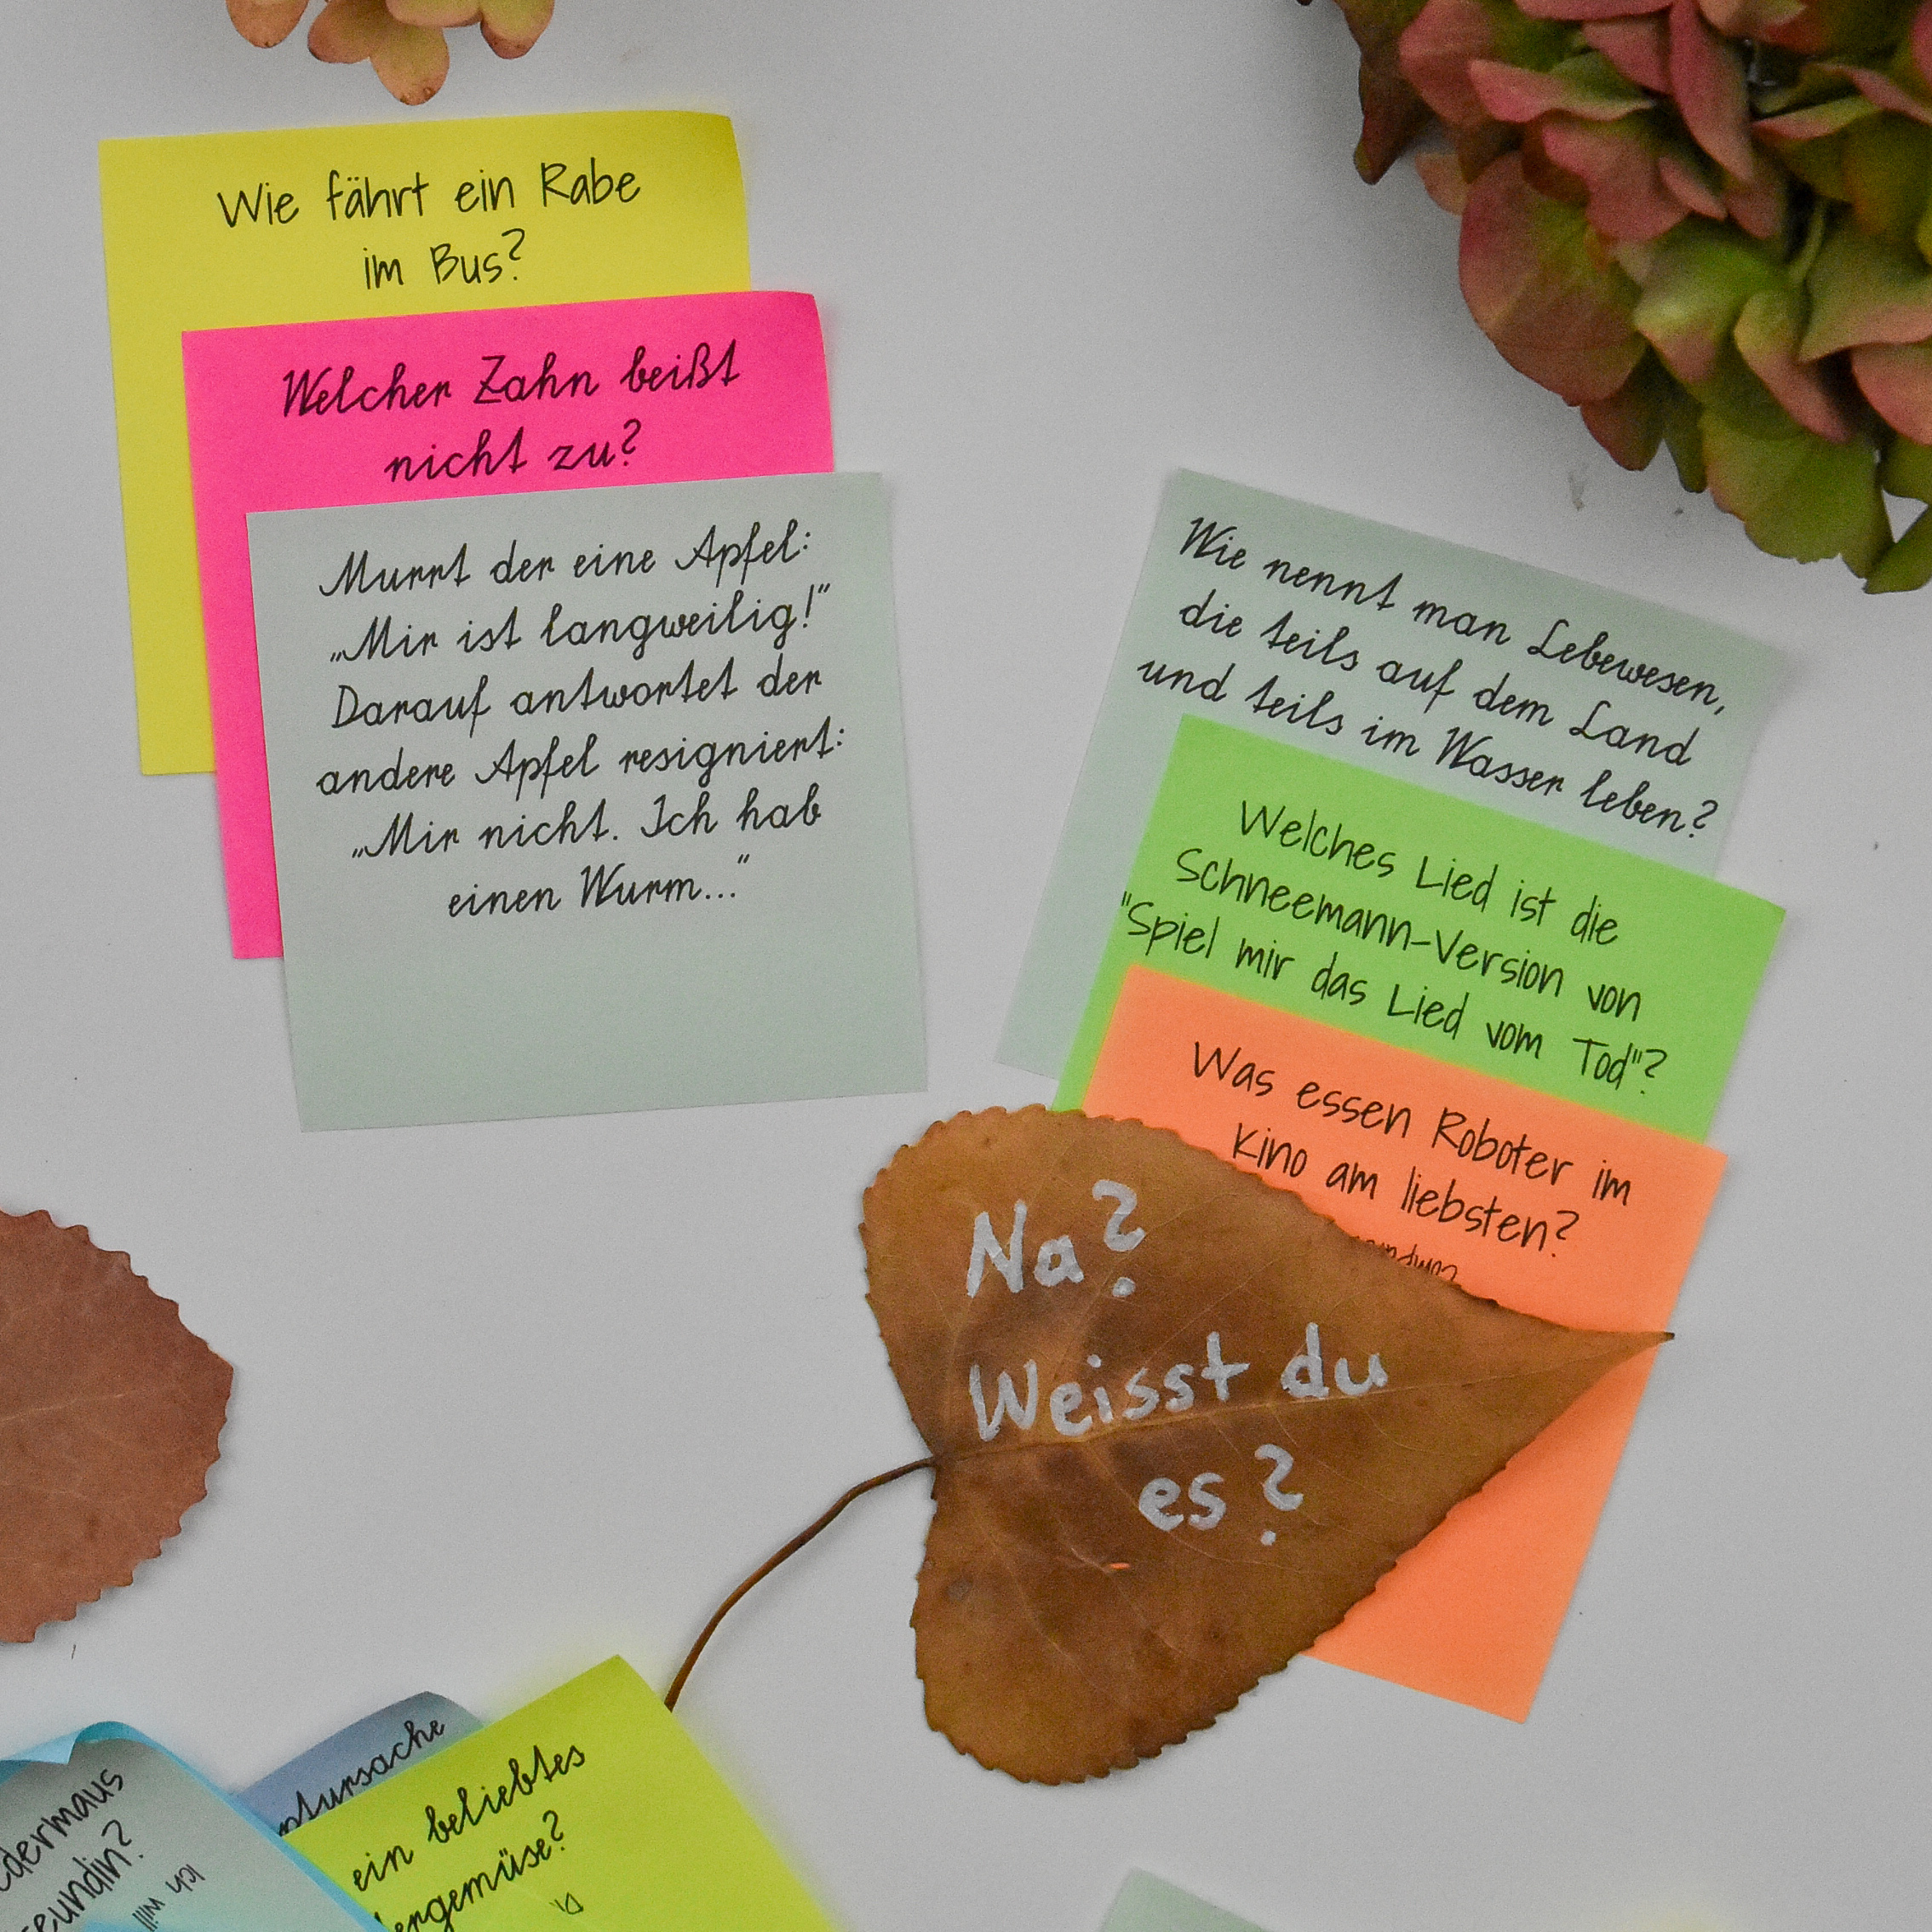 Wie fährt ein Rabe
im Bus?
Welcher Zahn beißt
nicht zu?
Murrt der eine Apfel:
„Mir ist langweilig!"
Darauf antwortet der
andere Apfel resigniert:
„Mir nicht. Ich hab
einen Wurm..."
Wie nennt man Lebewesen,
die teils auf dem Land
und teils im Wasser leben?
Welches Lied ist die
Schneemann-Version von
"Spiel mir das Lied vom Tod"?
Was essen Roboter im
Kino am liebsten?
Na?
Weisst du
es?
ein beliebtes
Ich will